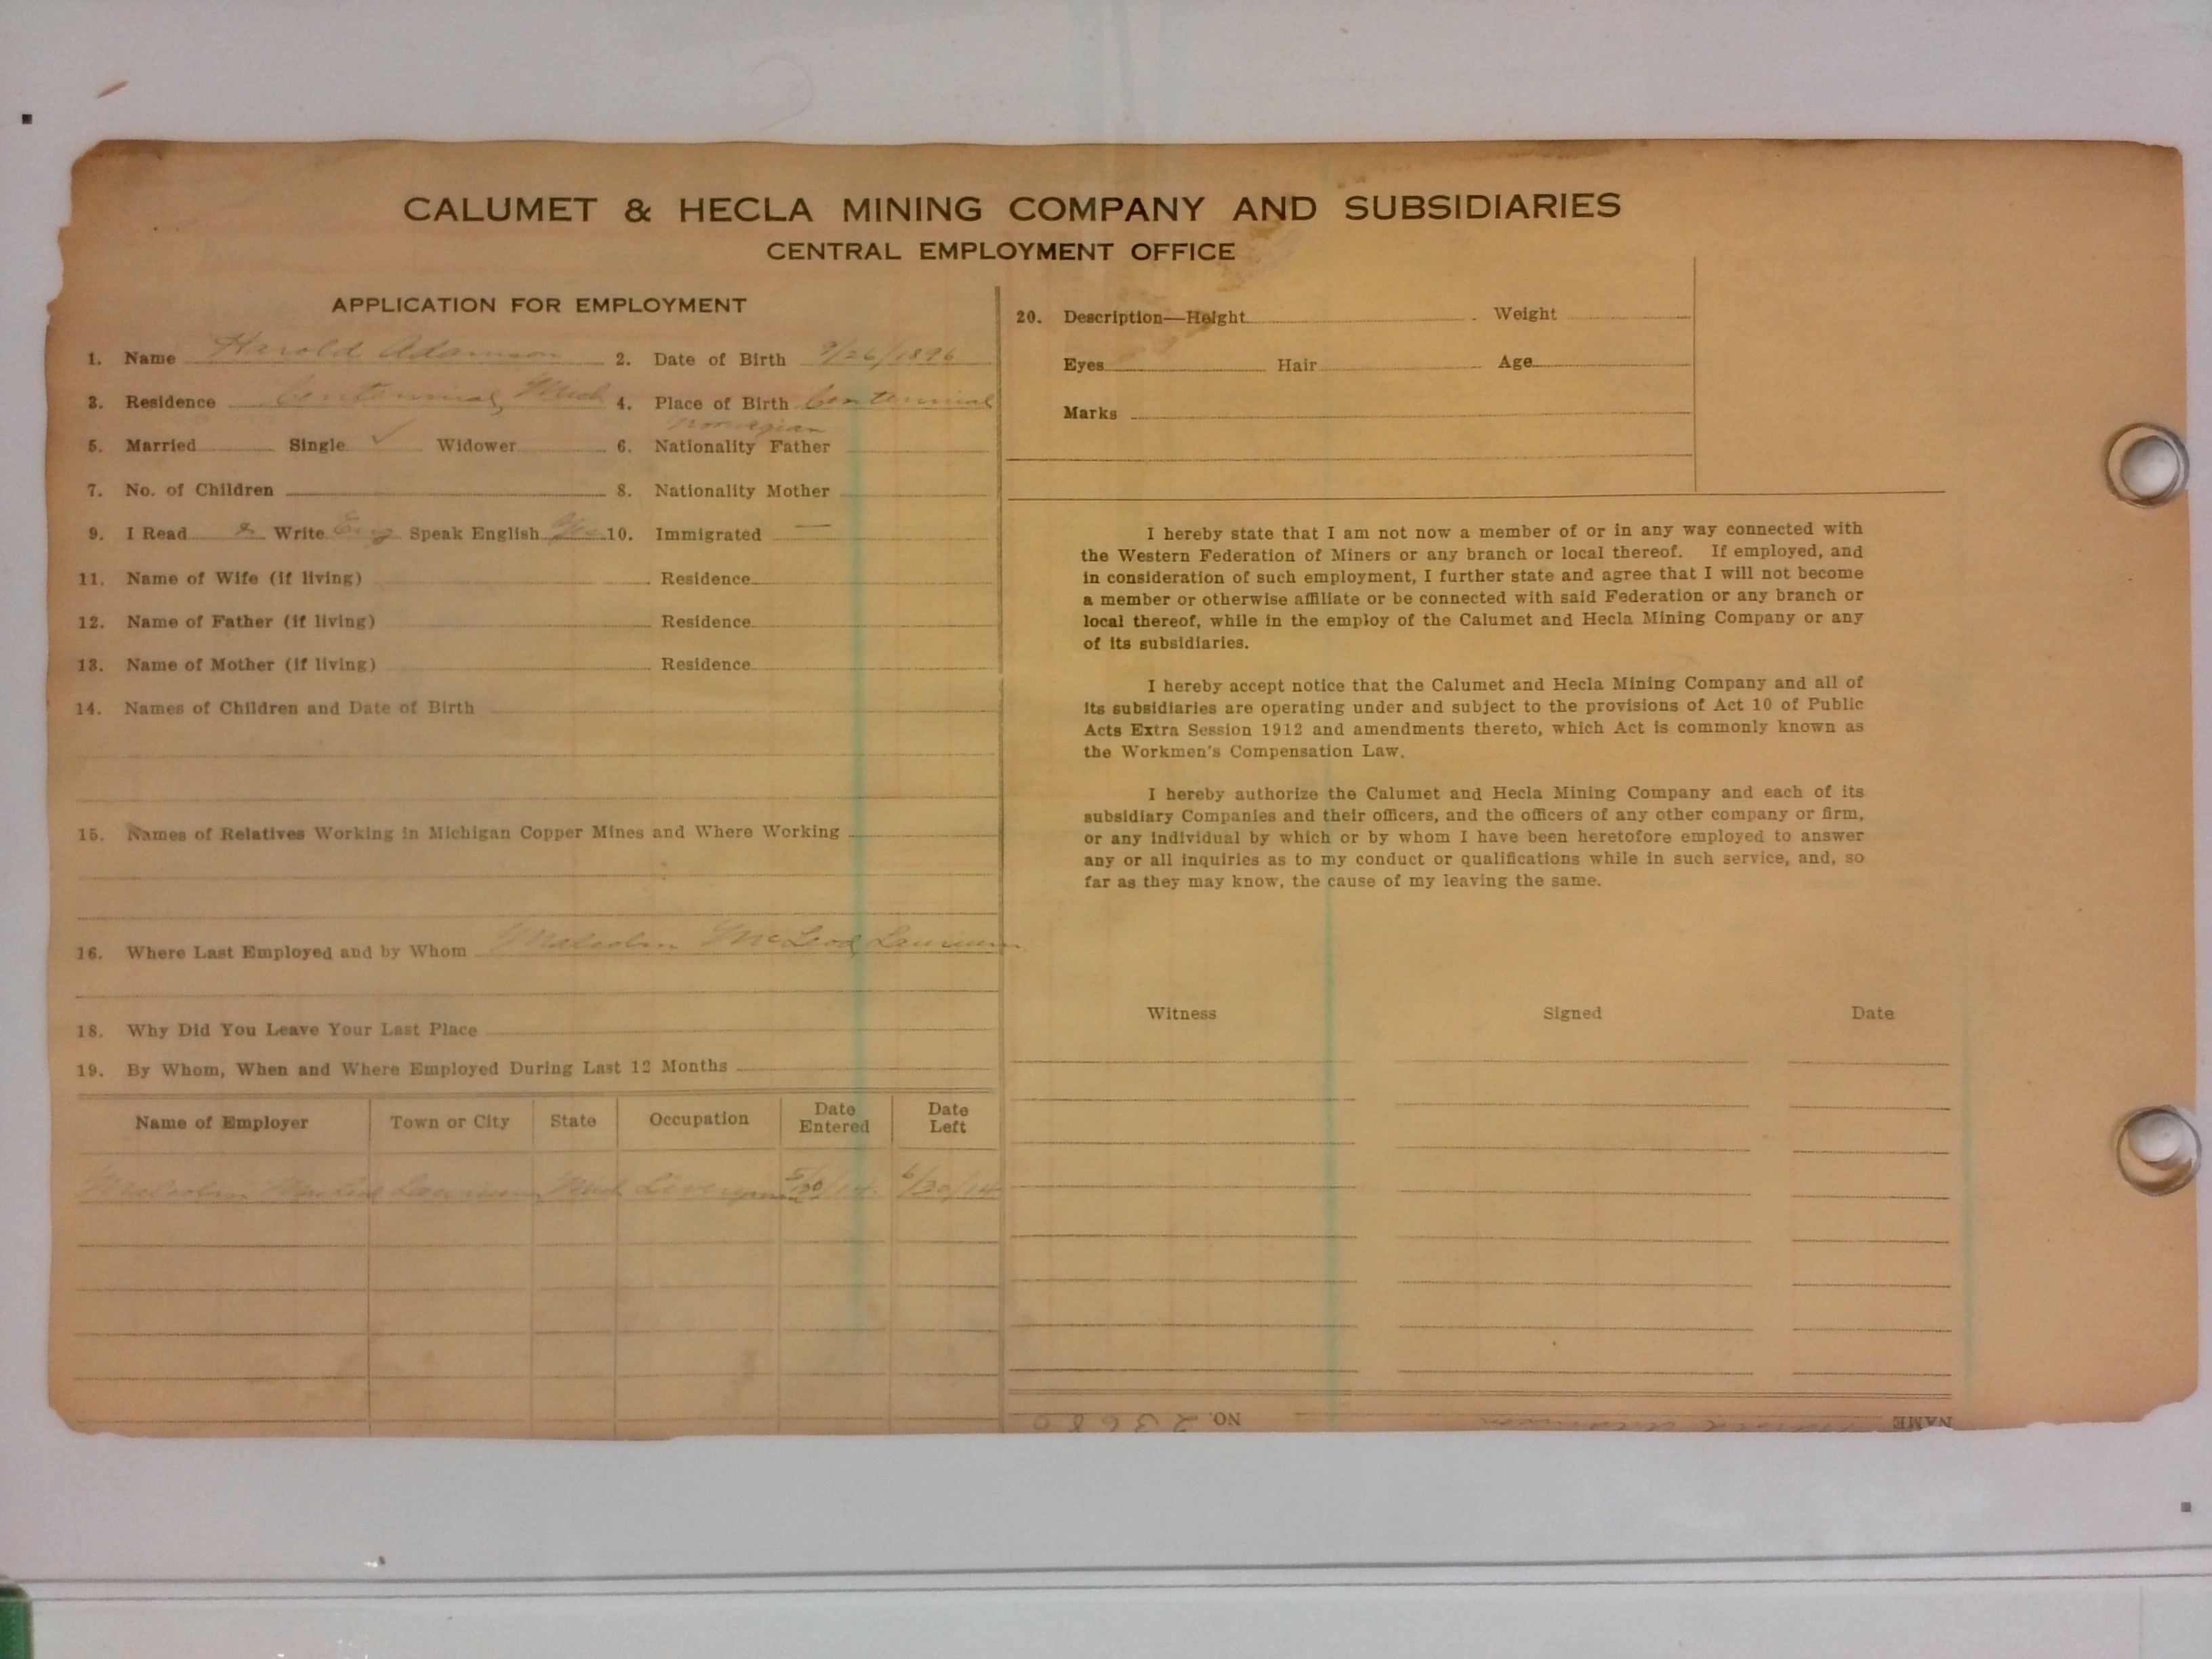 CALUMET & HECLA MINING COMPANY AND SUBSIDIARIES
CENTRAL EMPLOYMENT OFFICE
APPLICATION FOR EMPLOYMENT
1. Name Harold Adamson 2. Date of Birth 9/26/1896
3. Residence Centennial, Mich 4. Place of Birth Centennial
Norwegian
5. Married Single ✓ Widower 6. Nationality Father
7. No. of Children 8. Nationality Mother
9. I Read & Write Eng Speak English Yes 10. Immigrated —
11. Name of Wife (if living) Residence
12. Name of Father (if living) Residence
13. Name of Mother (if living) Residence
14. Names of Children and Date of Birth
15. Names of Relatives Working in Michigan Copper Mines and Where Working
16. Where Last Employed and by Whom Malcolm McLeod Laurium
18. Why Did You Leave Your Last Place
19. By Whom, When and Where Employed During Last 12 Months
Name of Employer Town or City State Occupation Date Entered Date Left
Malcolm MacLeod Laurium Mich Liveryman 5/30/14 6/30/14
20. Description—Height Weight
Eyes Hair Age
Marks
I hereby state that I am not now a member of or in any way connected with
the Western Federation of Miners or any branch or local thereof. If employed, and
in consideration of such employment, I further state and agree that I will not become
a member or otherwise affiliate or be connected with said Federation or any branch or
local thereof, while in the employ of the Calumet and Hecla Mining Company or any
of its subsidiaries.
I hereby accept notice that the Calumet and Hecla Mining Company and all of
its subsidiaries are operating under and subject to the provisions of Act 10 of Public
Acts Extra Session 1912 and amendments thereto, which Act is commonly known as
the Workmen's Compensation Law.
I hereby authorize the Calumet and Hecla Mining Company and each of its
subsidiary Companies and their officers, and the officers of any other company or firm,
or any individual by which or by whom I have been heretofore employed to answer
any or all inquiries as to my conduct or qualifications while in such service, and, so
far as they may know, the cause of my leaving the same.
Witness Signed Date
NAME Harold Adamson NO. 23680